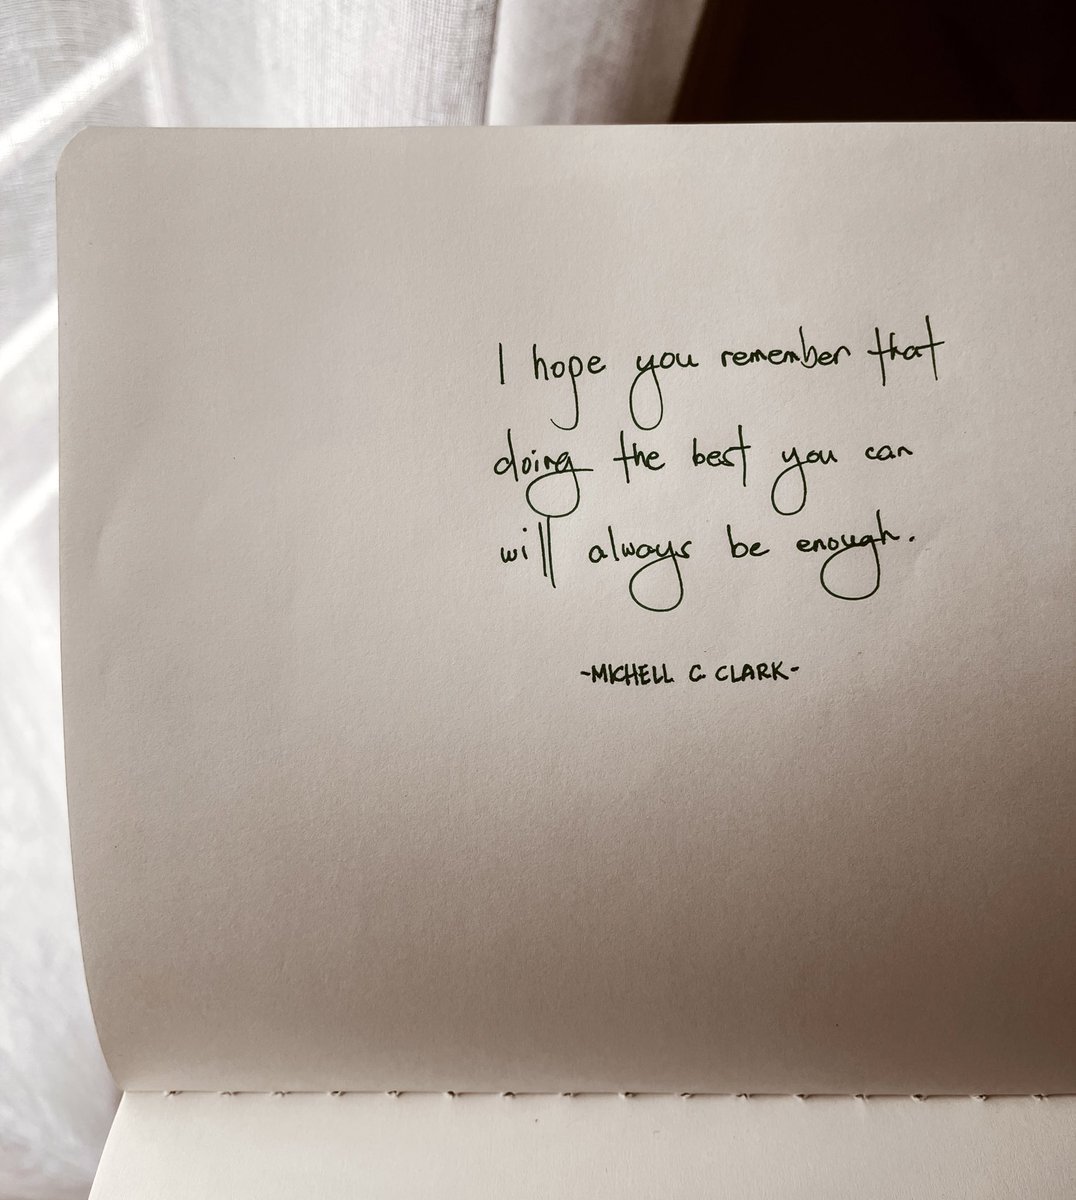 I hope you remember that
doing the best you can
will always be enough.
-MICHELL C. CLARK-